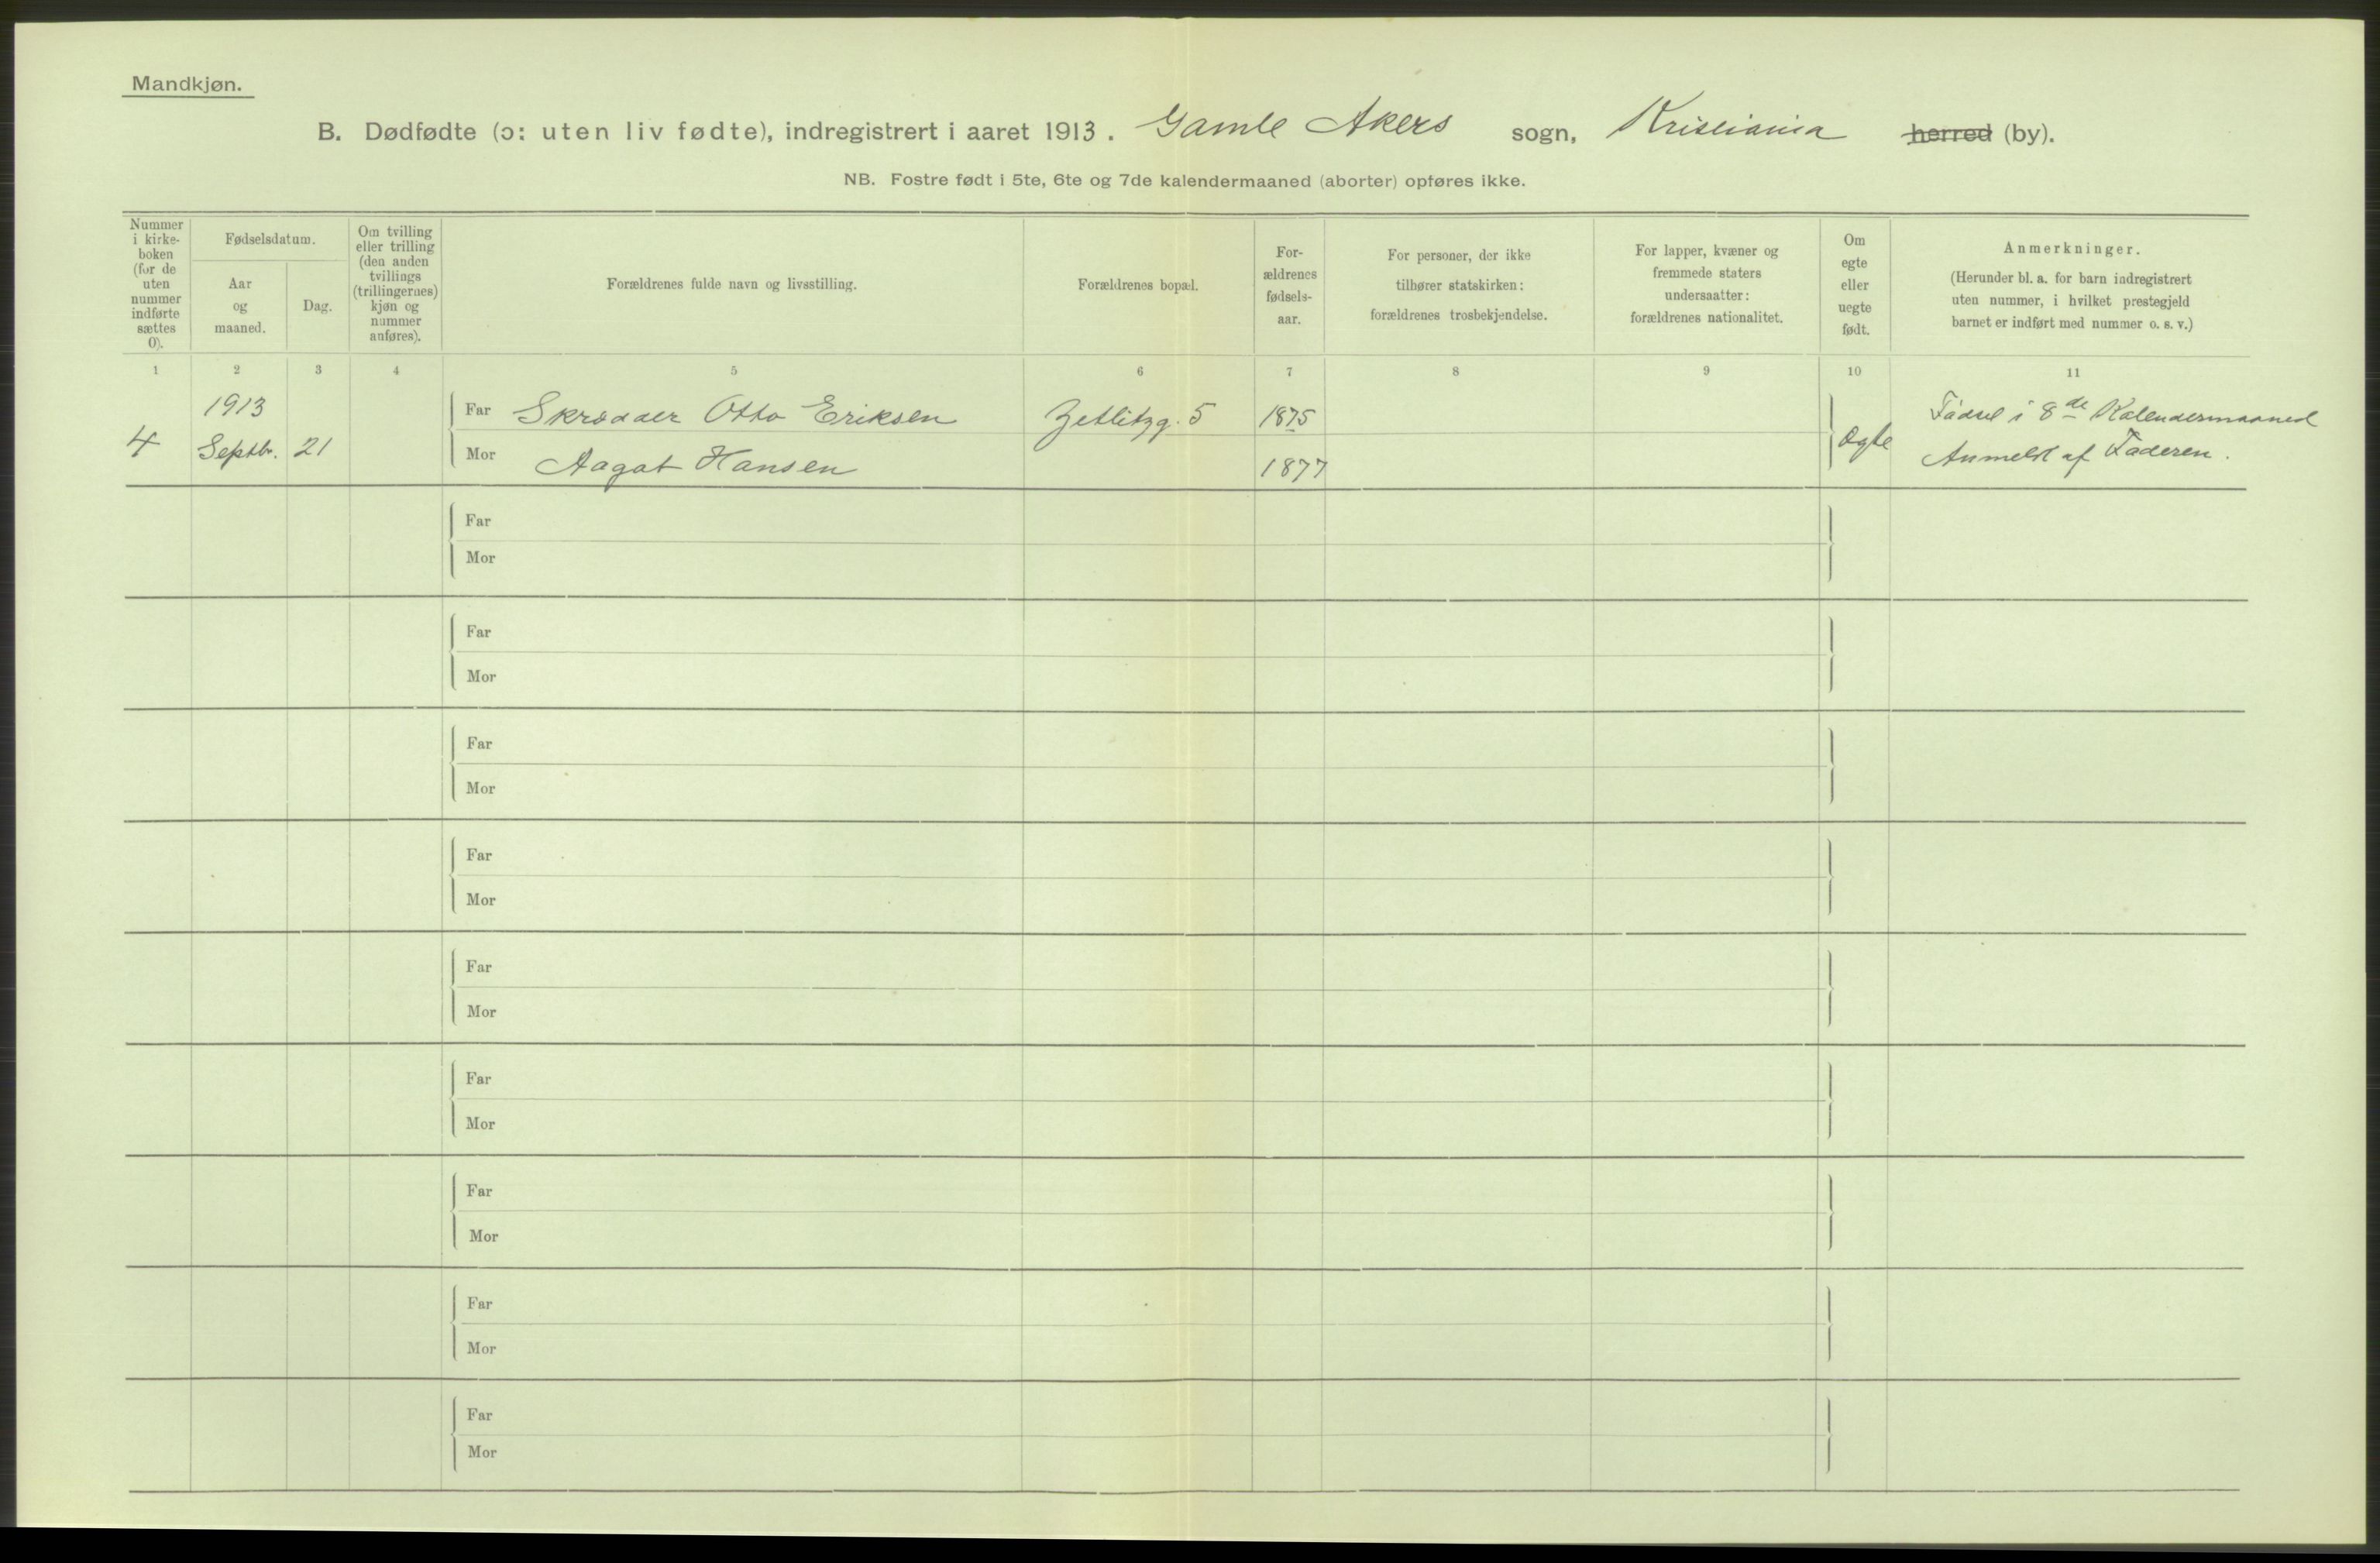 Mandkjøn.
B. Dødfødte (ɔ: uten liv fødte), indregistrert i aaret 1913. Gamle Akers sogn, Kristiania herred (by).
NB. Fostre født i 5te, 6te og 7de kalendermaaned (aborter) opføres ikke.
Nummer
i kirke-
boken
(for de
uten
nummer
indførte
sættes
0).
Fødselsdatum.
Aar
og
maaned.
Dag.
Om tvilling
eller trilling
(den anden
tvillings
(trillingernes)
kjøn og
nummer
anføres).
Forældrenes fulde navn og livsstilling.
Forældrenes bopæl.
For-
ældrenes
fødsels-
aar.
For personer, der ikke
tilhører statskirken:
forældrenes trosbekjendelse.
For lapper, kvæner og
fremmede staters
undersaatter:
forældrenes nationalitet.
Om
egte
eller
uegte
født.
Anmerkninger.
(Herunder bl. a. for barn indregistrert
uten nummer, i hvilket prestegjeld
barnet er indført med nummer o. s. v.)
1 2 3 4 5 6 7 8 9 10 11
1913 Far Skrædder Otto Eriksen Zetlitzg. 5 1875 Fødsel i 8de Kalendermaaned
4 Septbr. 21 Mor Aagot Hansen 1877 Ægte Anmeldt af Faderen.
Far
Mor
Far
Mor
Far
Mor
Far
Mor
Far
Mor
Far
Mor
Far
Mor
Far
Mor
Far
Mor